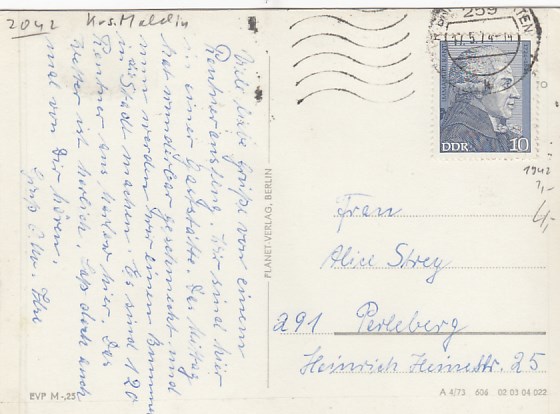 2042 Krs. Malchin
259
17.5.74-14
DDR 10
1942
1,-
4,-
Viele liebe Grüße von einem
Rentnerausflug. Wir sind hier
in einer Gaststätte. Das Mittag
hat wunderbar geschmeckt und
nun werden wir einen Bummel
in die Stadt machen. Es sind 120
Rentner aus hier. Das
Wetter ist herrlich. Laß doch auch
mal von Dir hören.
Gruß
PLANET-VERLAG, BERLIN
Frau
Alice Strey
291 Perleberg
Heinrich Heinestr. 25
EVP M -,25
A 4/73 606 02 03 04 022